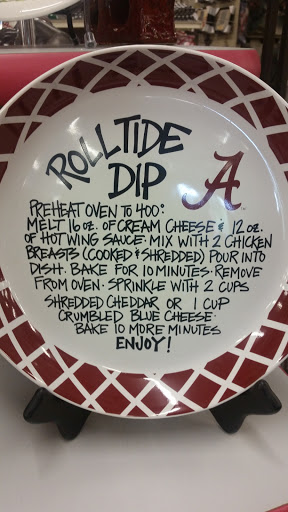 ROLL TIDE
DIP
A
PREHEAT OVEN TO 400:
MELT 16 OZ. OF CREAM CHEESE & 12 OZ.
OF HOT WING SAUCE. MIX WITH 2 CHICKEN
BREASTS (COOKED & SHREDDED) POUR INTO
DISH. BAKE FOR 10 MINUTES. REMOVE
FROM OVEN. SPRINKLE WITH 2 CUPS
SHREDDED CHEDDAR OR 1 CUP
CRUMBLED BLUE CHEESE.
BAKE 10 MORE MINUTES
ENJOY!